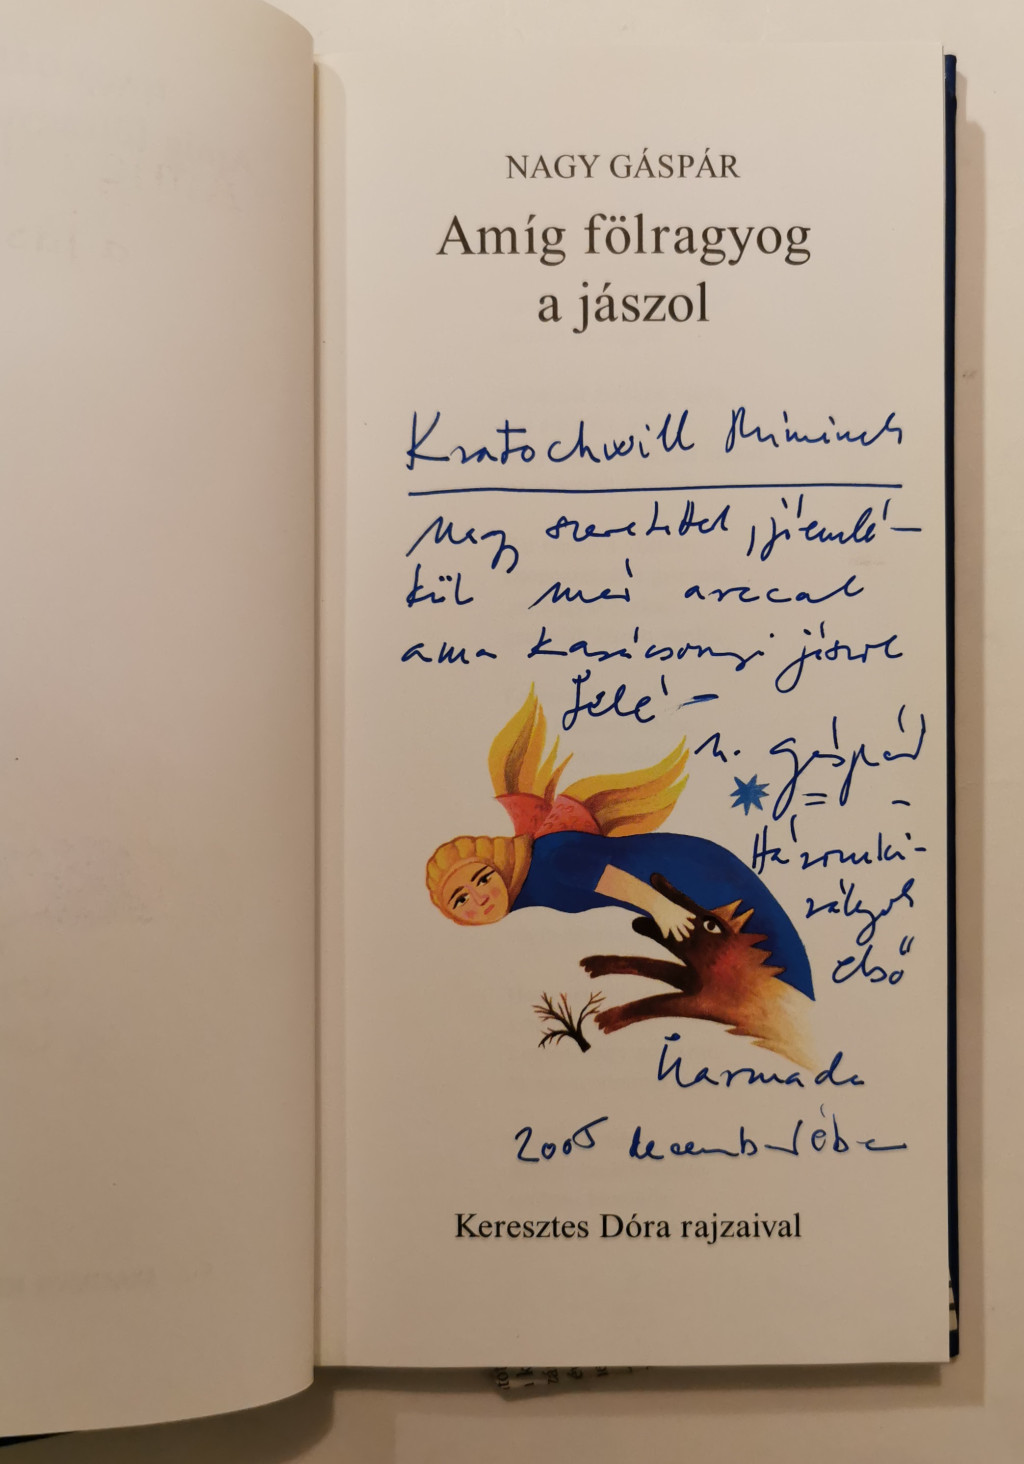 NAGY GÁSPÁR
Amíg fölragyog
a jászol
Kratochwill Miminek
Nagy szeretettel, jóemlé-
kül már arccal
ama karácsonyi jászol
felé –
n. Gáspár
Háromki-
rályok
első
Harmada
2005 decemberében
Keresztes Dóra rajzaival